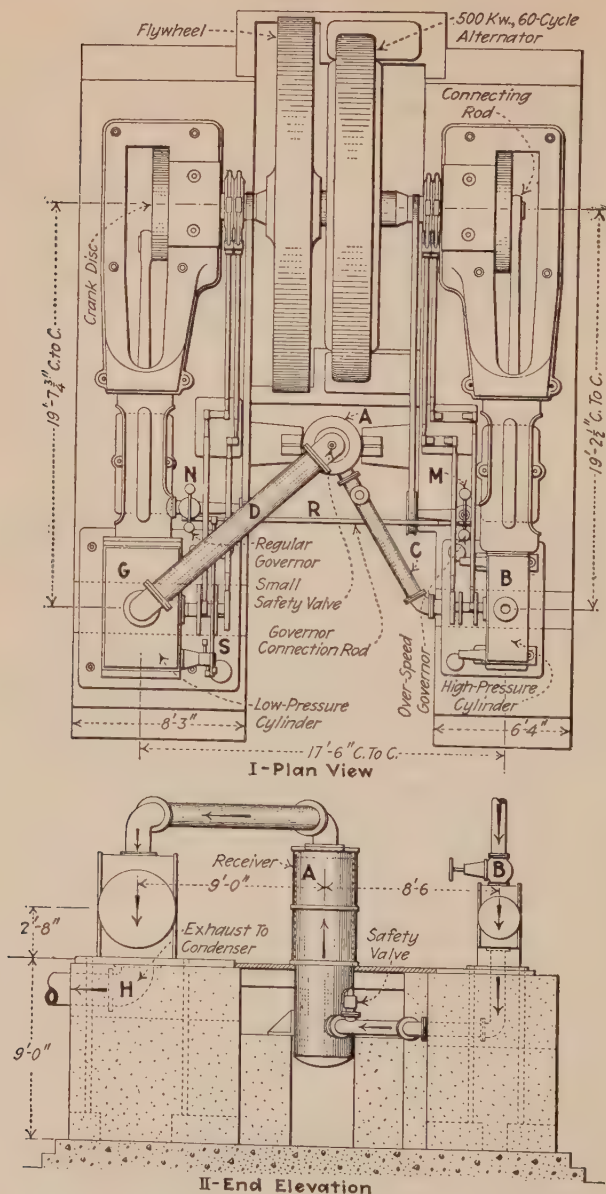 Flywheel
500 Kw., 60-Cycle
Alternator
Connecting
Rod
Crank Disc
19'-7 3/4" C. to C.
19'-2 1/2" C. To C.
A
N
M
D
R
C
G
B
S
Regular
Governor
Small
Safety Valve
Governor
Connection Rod
Over-Speed
Governor
High-Pressure
Cylinder
Low-Pressure
Cylinder
8'-3"
6'-4"
17'-6" C. To C.
I-Plan View
Receiver
A
B
9'-0"
8'-6
2'-8"
Exhaust To
Condenser
Safety
Valve
H
9'-0"
II-End Elevation